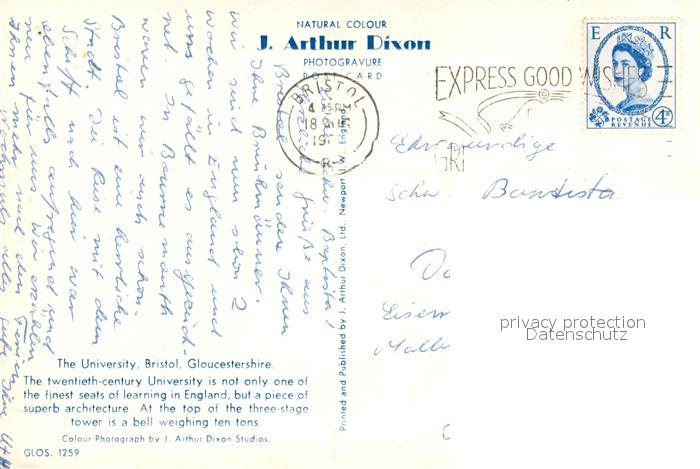 NATURAL COLOUR
J. Arthur Dixon
PHOTOGRAVURE
POST CARD
BRISTOL
4 15 PM
18
19
R
EXPRESS GOOD WISHES
GR
E R
POSTAGE
REVENUE
4D
Ehrwürdige
Schw. Baptista
Eisen
privacy protection
Datenschutz
Baptista!
Herzliche Grüße aus
Bristol sendet Ihnen
Ihre
wir sind nun schon 2
Wochen in England und
uns gefällt es ausgezeich-
net. In Bournemouth
waren wir auch schon.
Bristol ist eine herrliche
Stadt. Die Reise mit dem
Schiff nach hier war
ebenfalls aufregend und
neu für uns. Wir erzählen
Ihnen mehr nach den Ferien
Printed and Published by J. Arthur Dixon, Ltd., Newport I.W. England.
The University, Bristol, Gloucestershire.
The twentieth-century University is not only one of
the finest seats of learning in England, but a piece of
superb architecture. At the top of the three-stage
tower is a bell weighing ten tons.
Colour Photograph by J. Arthur Dixon Studios.
GLOS. 1259